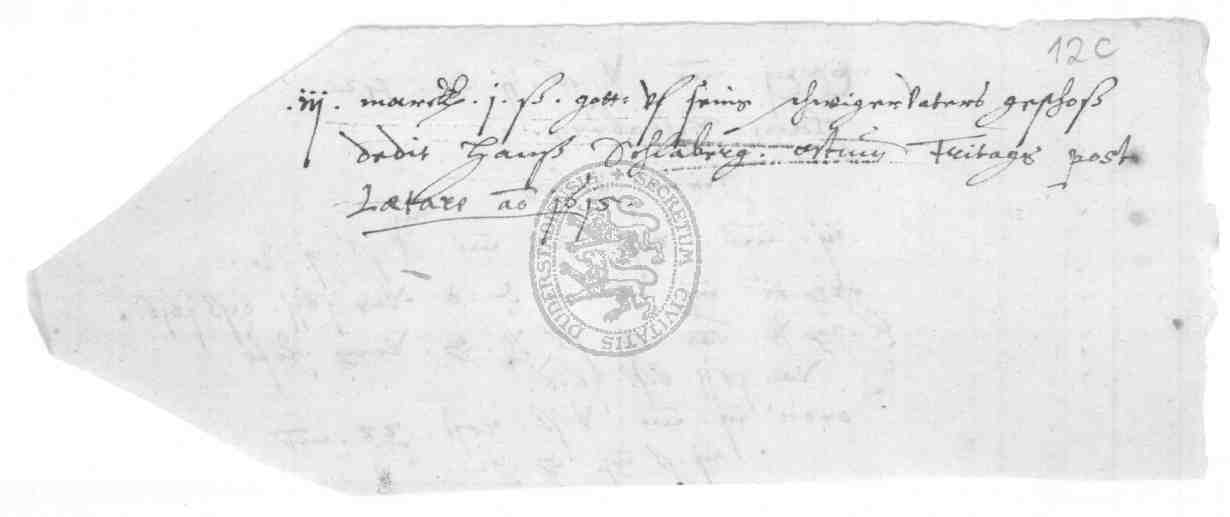 12c
.iij. marck. j. ß. gott: vf seins schwigervaters geschoß
dedit Hanß Schlaberg. Fritags post
Lætare ao 1615
SECRETUM CIVITATIS DUDERSTADENSIS